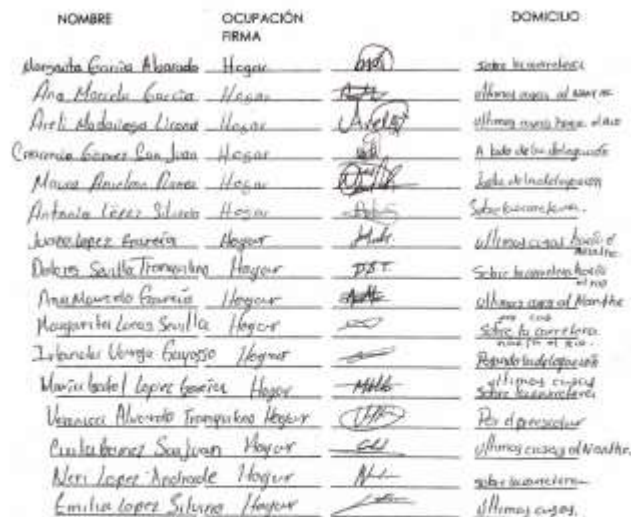 NOMBRE OCUPACIÓN DOMICILIO
FIRMA
Margarita García Alvarado Hogar sobre la carretera
Ana Marcela García Hogar ultimas casas al Nanthe
Areli Madariaga Licona Hogar Areli ultimas casas hacia el Rio
Crecencia Gomez San Juan Hogar A lado de la delegación
Maura Hogar lado de la delegación
Antonia López Silverio Hogar Sobre la carretera.
Juana Lopez García Hogar ultimas casas hacia el Nanthe.
Dolores Sevilla Tranquilino Hogar D.S.T. Sobre la carretera hacia el rio
Ana Marcela García Hogar ultimas casas al Nanthe
Margarita Lucas Sevilla Hogar Sobre la carretera hacia el Rio.
Vargas Gayosso Hogar la delegación
María Isabel Lopez García Hogar ultimas casas sobre la carretera
Veronica Alvarado Tranquilino Hogar Por el preescolar
Gomez San Juan Hogar ultimas casas al Nanthe.
Neri Lopez Andrade Hogar sobre la carretera
Emilia Lopez Silverio Hogar ultimas casas.